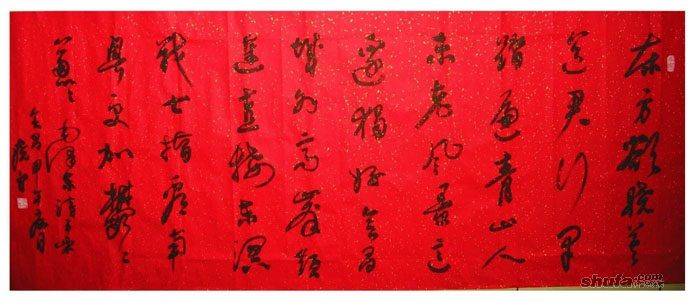 东方欲晓莫
道君行早
踏遍青山人
未老风景这
边独好会昌
城外高峰颠
连直接东溟
战士指看南
粤更加鬱々
葱々 毛泽东清平乐
会昌 甲午
shufa.com